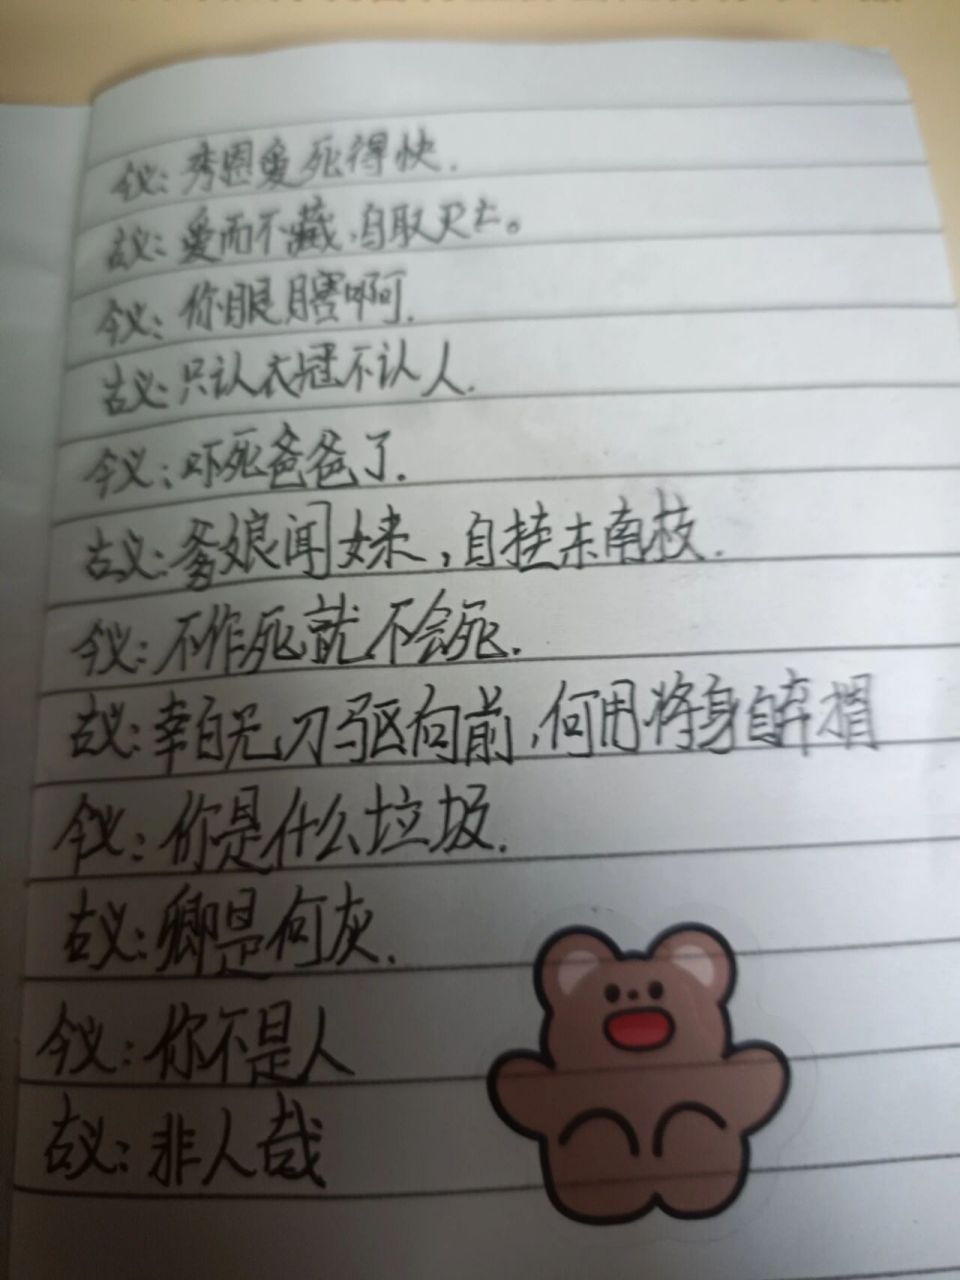 今义:秀恩爱死得快.
古义:爱而不藏,自取灭亡。
今义:你眼瞎啊.
古义:只认衣冠不认人.
今义:吓死爸爸了.
古义:爹娘闻女来,自挂东南枝.
今义:不作死就不会死.
古义:幸自无刀驱向前,何用将身自弃捐
今义:你是什么垃圾.
古义:卿是何灰.
今义:你不是人
古义:非人哉